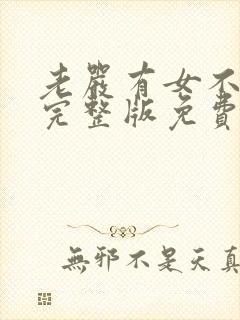 老嚴有女不
完整版免費
無邪不是天真